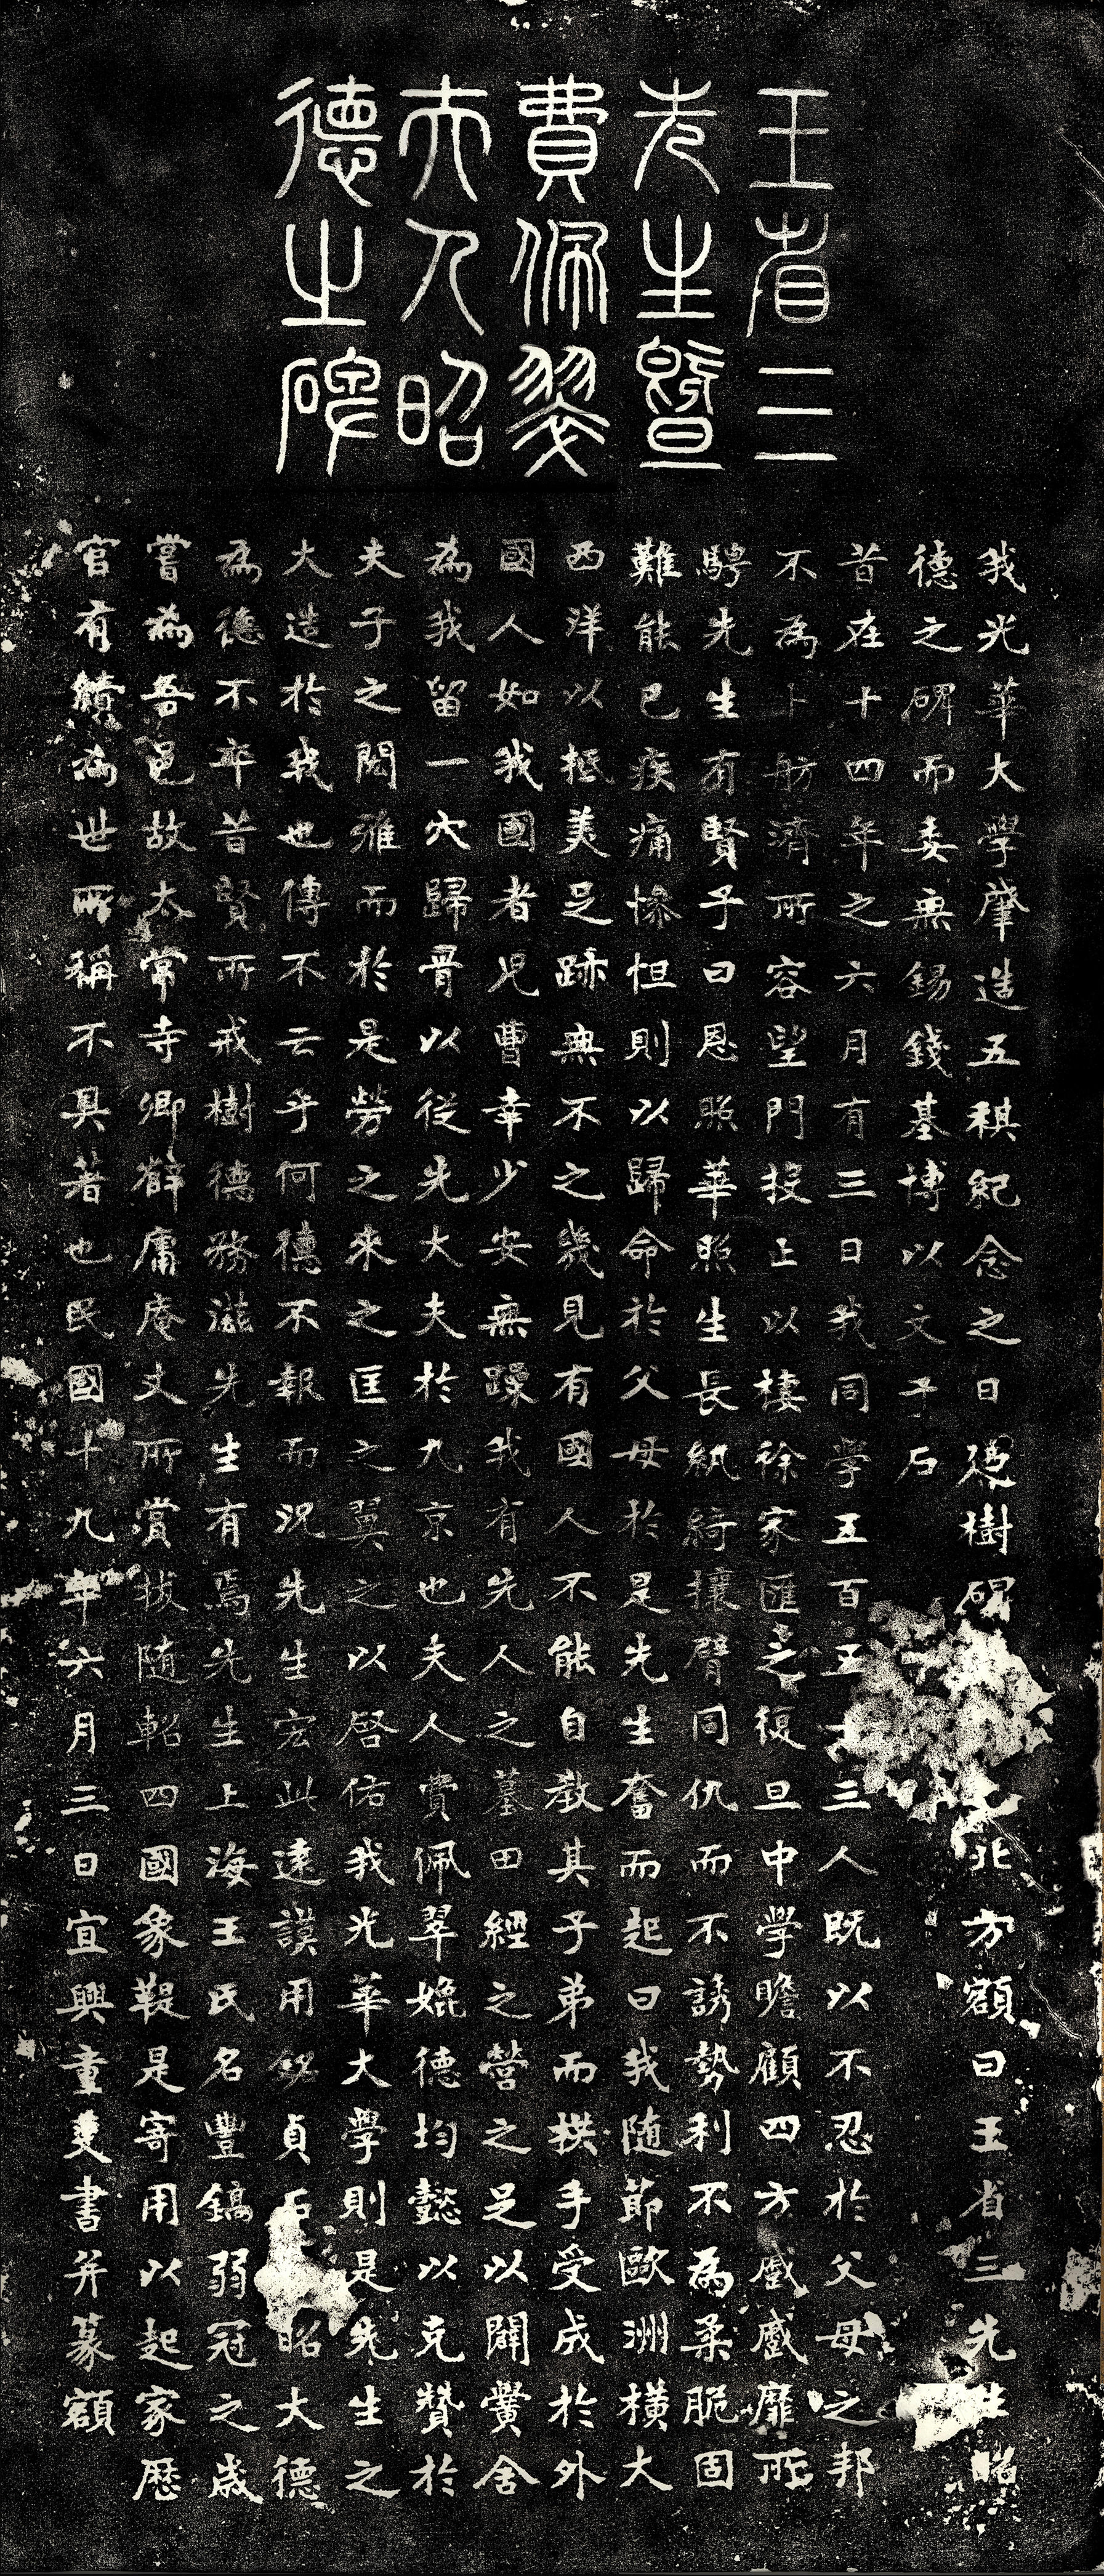 王省三
先生暨
費佩翠
夫人昭
德之碑
我光華大學肇造五稘紀念之日爰樹碑北方額曰王省三先生昭
德之碑而委無錫錢基博以文于石
昔在十四年之六月有三日我同學五百五十三人既以不忍於父母之邦
不為卜舫濟所容望門投止以棲徐家匯之復旦中學瞻顧四方蹙蹙靡所
騁先生有賢子曰恩照華照生長紈綺攘臂同仇而不誘勢利不為柔脆固
難能已疾痛慘怛則以歸命於父母於是先生奮而起曰我隨節歐洲橫大
西洋以抵美足跡無不之幾見有國人不能自教其子弟而拱手受成於外
國人如我國者兒曹幸少安無躁我有先人之墓田經之營之足以闢黌舍
為我留一穴歸骨以從先大夫於九京也夫人費佩翠媲德均懿以克贊於
夫子之閎雅而於是勞之來之匡之翼之以啓佑我光華大學則是先生之
大造於我也傳不云乎何德不報而況先生宏此遠謨用鐫貞石昭大德
為德不卒昔賢所戒樹德務滋先生有焉先生上海王氏名豐鎬弱冠之歲
嘗為吾邑故太常寺卿薛庸庵丈所賞拔隨軺四國象鞮是寄用以起家歷
官有績為世所稱不具著也民國十九年六月三日宜興童斐書并篆額